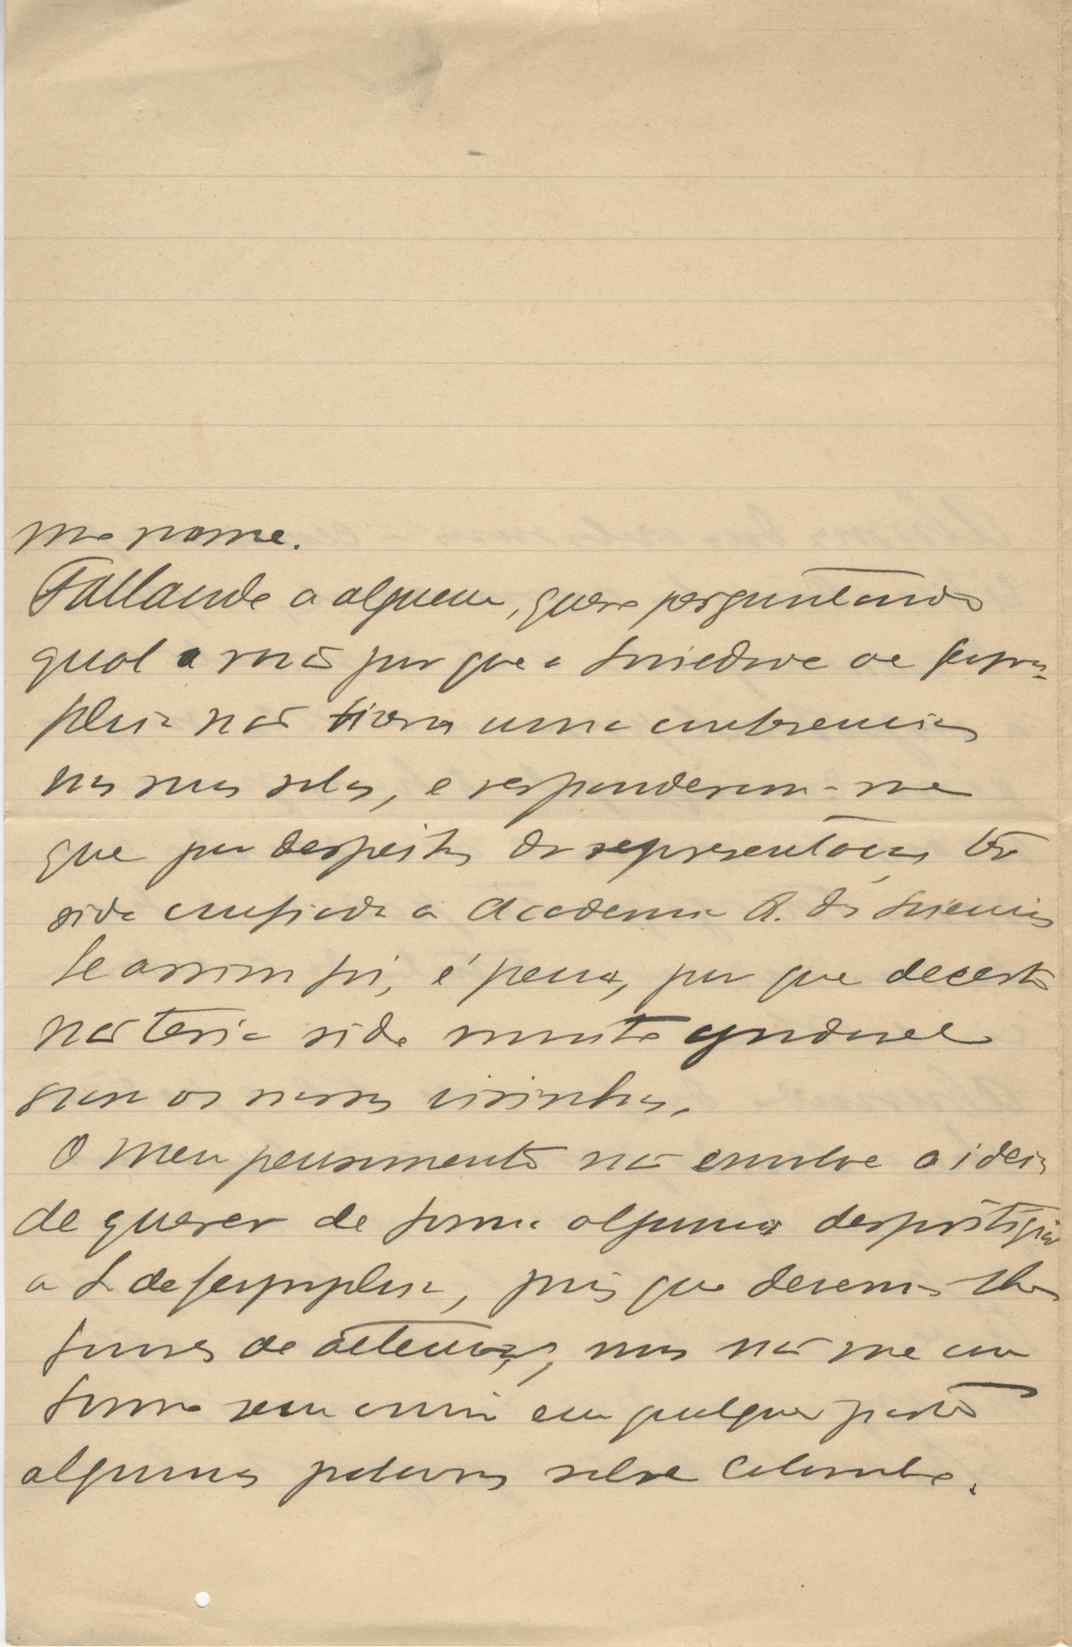 mo nome.
Fallando a alguem, quero perguntando
qual a rasão por que a Sociedade de Geogra-
phia não tivera uma conferencia
nas suas salas, e responderam-me
que por despeito da representação ter
sido confiada á Academia R. das Sciencias
Se assim foi, é pena, por que decerto
não teria sido muito agradavel
para os nossos visinhos.
O meu pensamento não envolve a ideia
de querer de forma alguma desprestigiar
a S. de Geographia, pois que devemos-lhe
fineses de attenção, mas não me con
formo sem ouvir em qualquer parte
algumas palavras sobre Colombo.